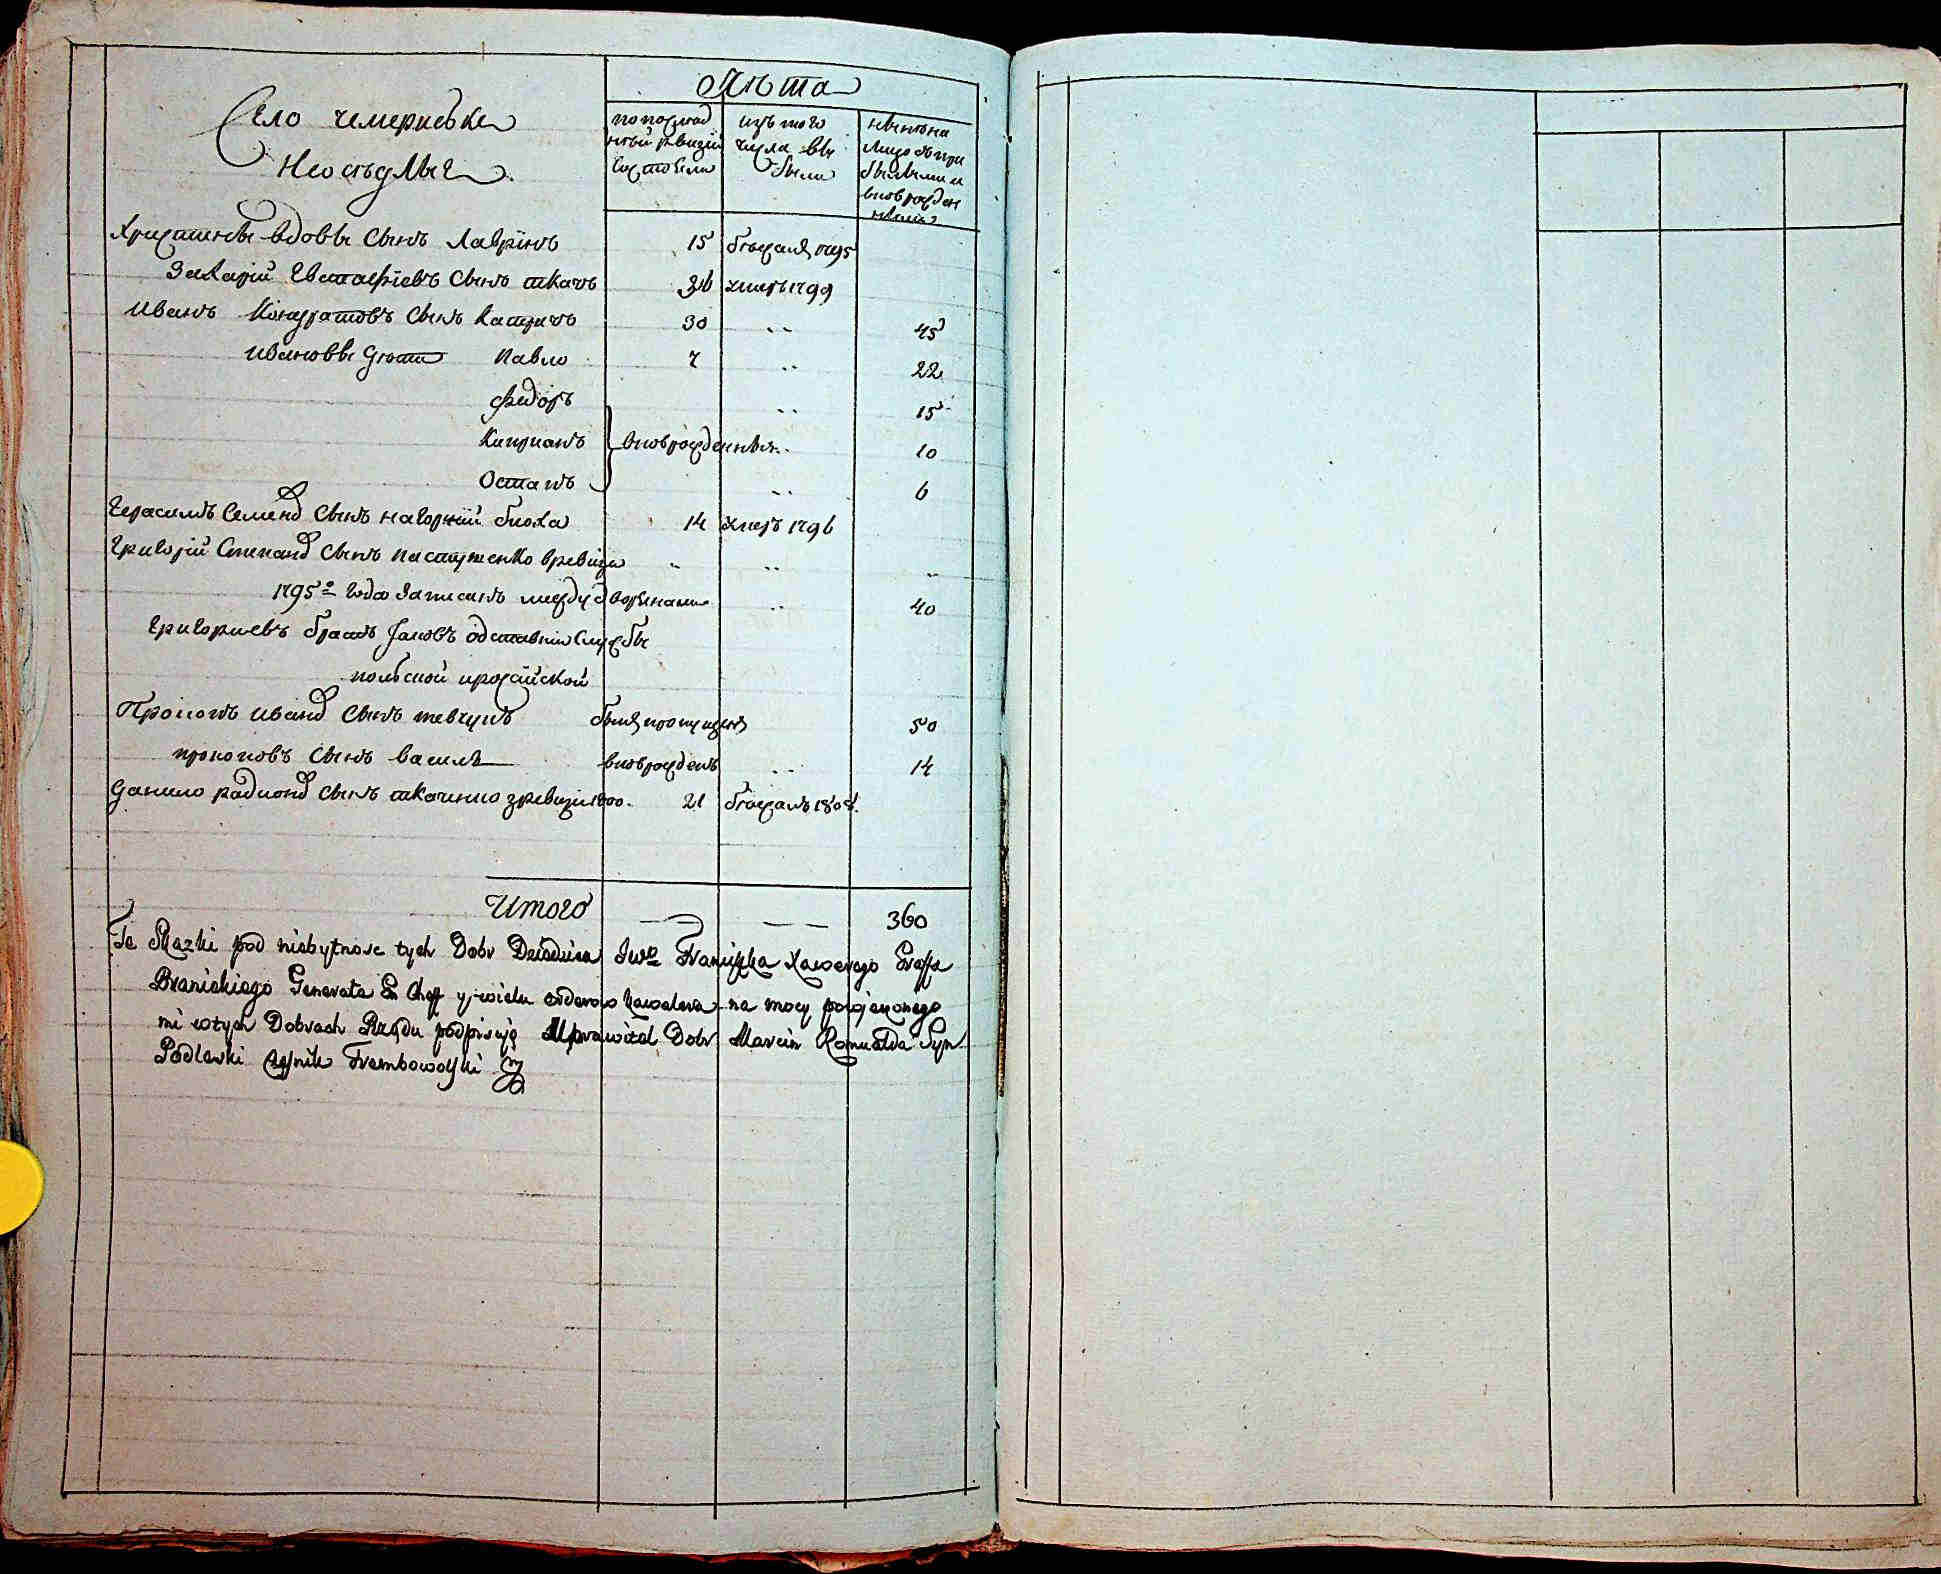 Лѣта
Село чемериские
Неосѣдлые
по послед
ней ревизіи
состояло
изъ того
числа вы
было
ныне на
лицо съ при
былыми и
вноврожден
ными
вдовы сынъ Лаврінъ 15 бежалъ 1795
Захарій Евстафіевъ сынъ ткачъ 36 умеръ 1799
Иванъ Кондратовъ сынъ 30 45
Ивановы дети Павло 7 22
Федоръ 15
Киприанъ вноврожденные 10
Остапъ 6
Герасимъ Семенов сынъ нагорній блоха 14 умеръ 1796
Григорій Степанов сынъ пастушенко вревизіи
1795го года записанъ между дворянами 40
Григориевъ братъ Яковъ одставний службы
польской ироссійской
Прокопъ иванов сынъ шевчукъ былъ пропущенъ 50
прокоповъ сынъ василь вноврожденъ 14
Данило радионов сынъ ткаченко зревизіи 1800. 21 бежалъ 1808.
Итого 360
Te Skazki pod niebytnosc tych Dobr Dziedzica Jwo Franciszka Xawerego Graffa
Branickiego Generała En Cheff y wielu orderow kawalera na mocy poruczonego
mi wtych Dobrach Rządu podpisuję Uprawitel Dobr Marcin Romualda Syn
Podlaski Trembowolski